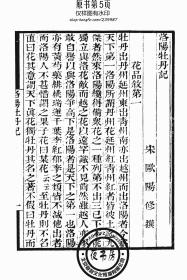 原书第5页
仅样图有水印
洛陽牡丹記
宋歐陽修撰
花品敘第一
牡丹出丹州延州東出青州南亦出越州而出洛陽者今為
天下第一洛陽所謂丹州花延州紅青州紅者皆彼土之尤
傑者然來洛陽纔得備眾花之一種列第不出三已下不能
獨立與洛花敵而越之花以遠罕識不見齒然雖越人亦不
敢自譽以與洛陽爭高下是洛陽者果天下之第一也洛陽
亦有黃芍藥緋桃瑞蓮千葉李紅郁李之類皆不減他出者
而洛陽人不甚惜謂之果子花曰某花云云至牡丹則不名
直曰花其意謂天下真花獨牡丹其名之著不假曰牡丹而
洛陽牡丹記
一